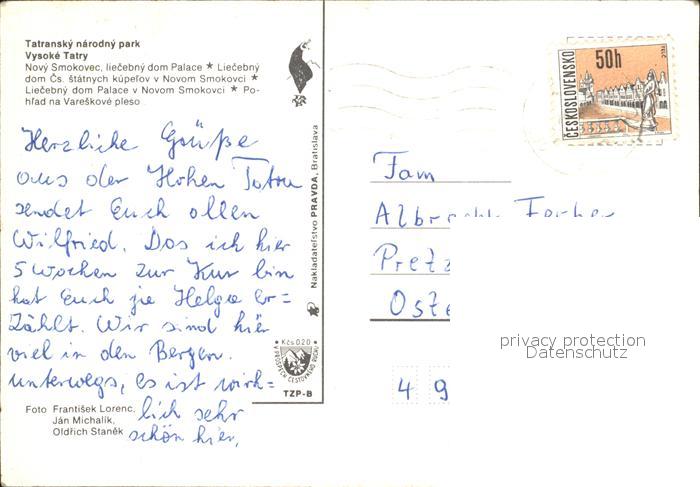 Tatranský národný park
Vysoké Tatry
Nový Smokovec, liečebný dom Palace ★ Liečebný
dom Čs. štátnych kúpeľov v Novom Smokovci ★
Liečebný dom Palace v Novom Smokovci ★ Po-
hľad na Vareškové pleso
Herzliche Grüße
aus der Hohen Tatra
sendet Euch allen
Wilfried. Das ich hier
5 Wochen zur Kur bin
hat Euch ja Helga er=
zählt. Wir sind hier
viel in den Bergen
unterwegs, es ist wirk=
lich sehr
schön hier,
Foto František Lorenc,
Ján Michalík,
Oldřich Staněk
Nakladateľstvo PRAVDA, Bratislava
Kčs 0,20
V PROSPECH CESTOVNÉHO RUCHU
TZP-B
ČESKOSLOVENSKO
50h
TELČ
Fam
Albrecht
Pretz
Oste
4 9
privacy protection
Datenschutz